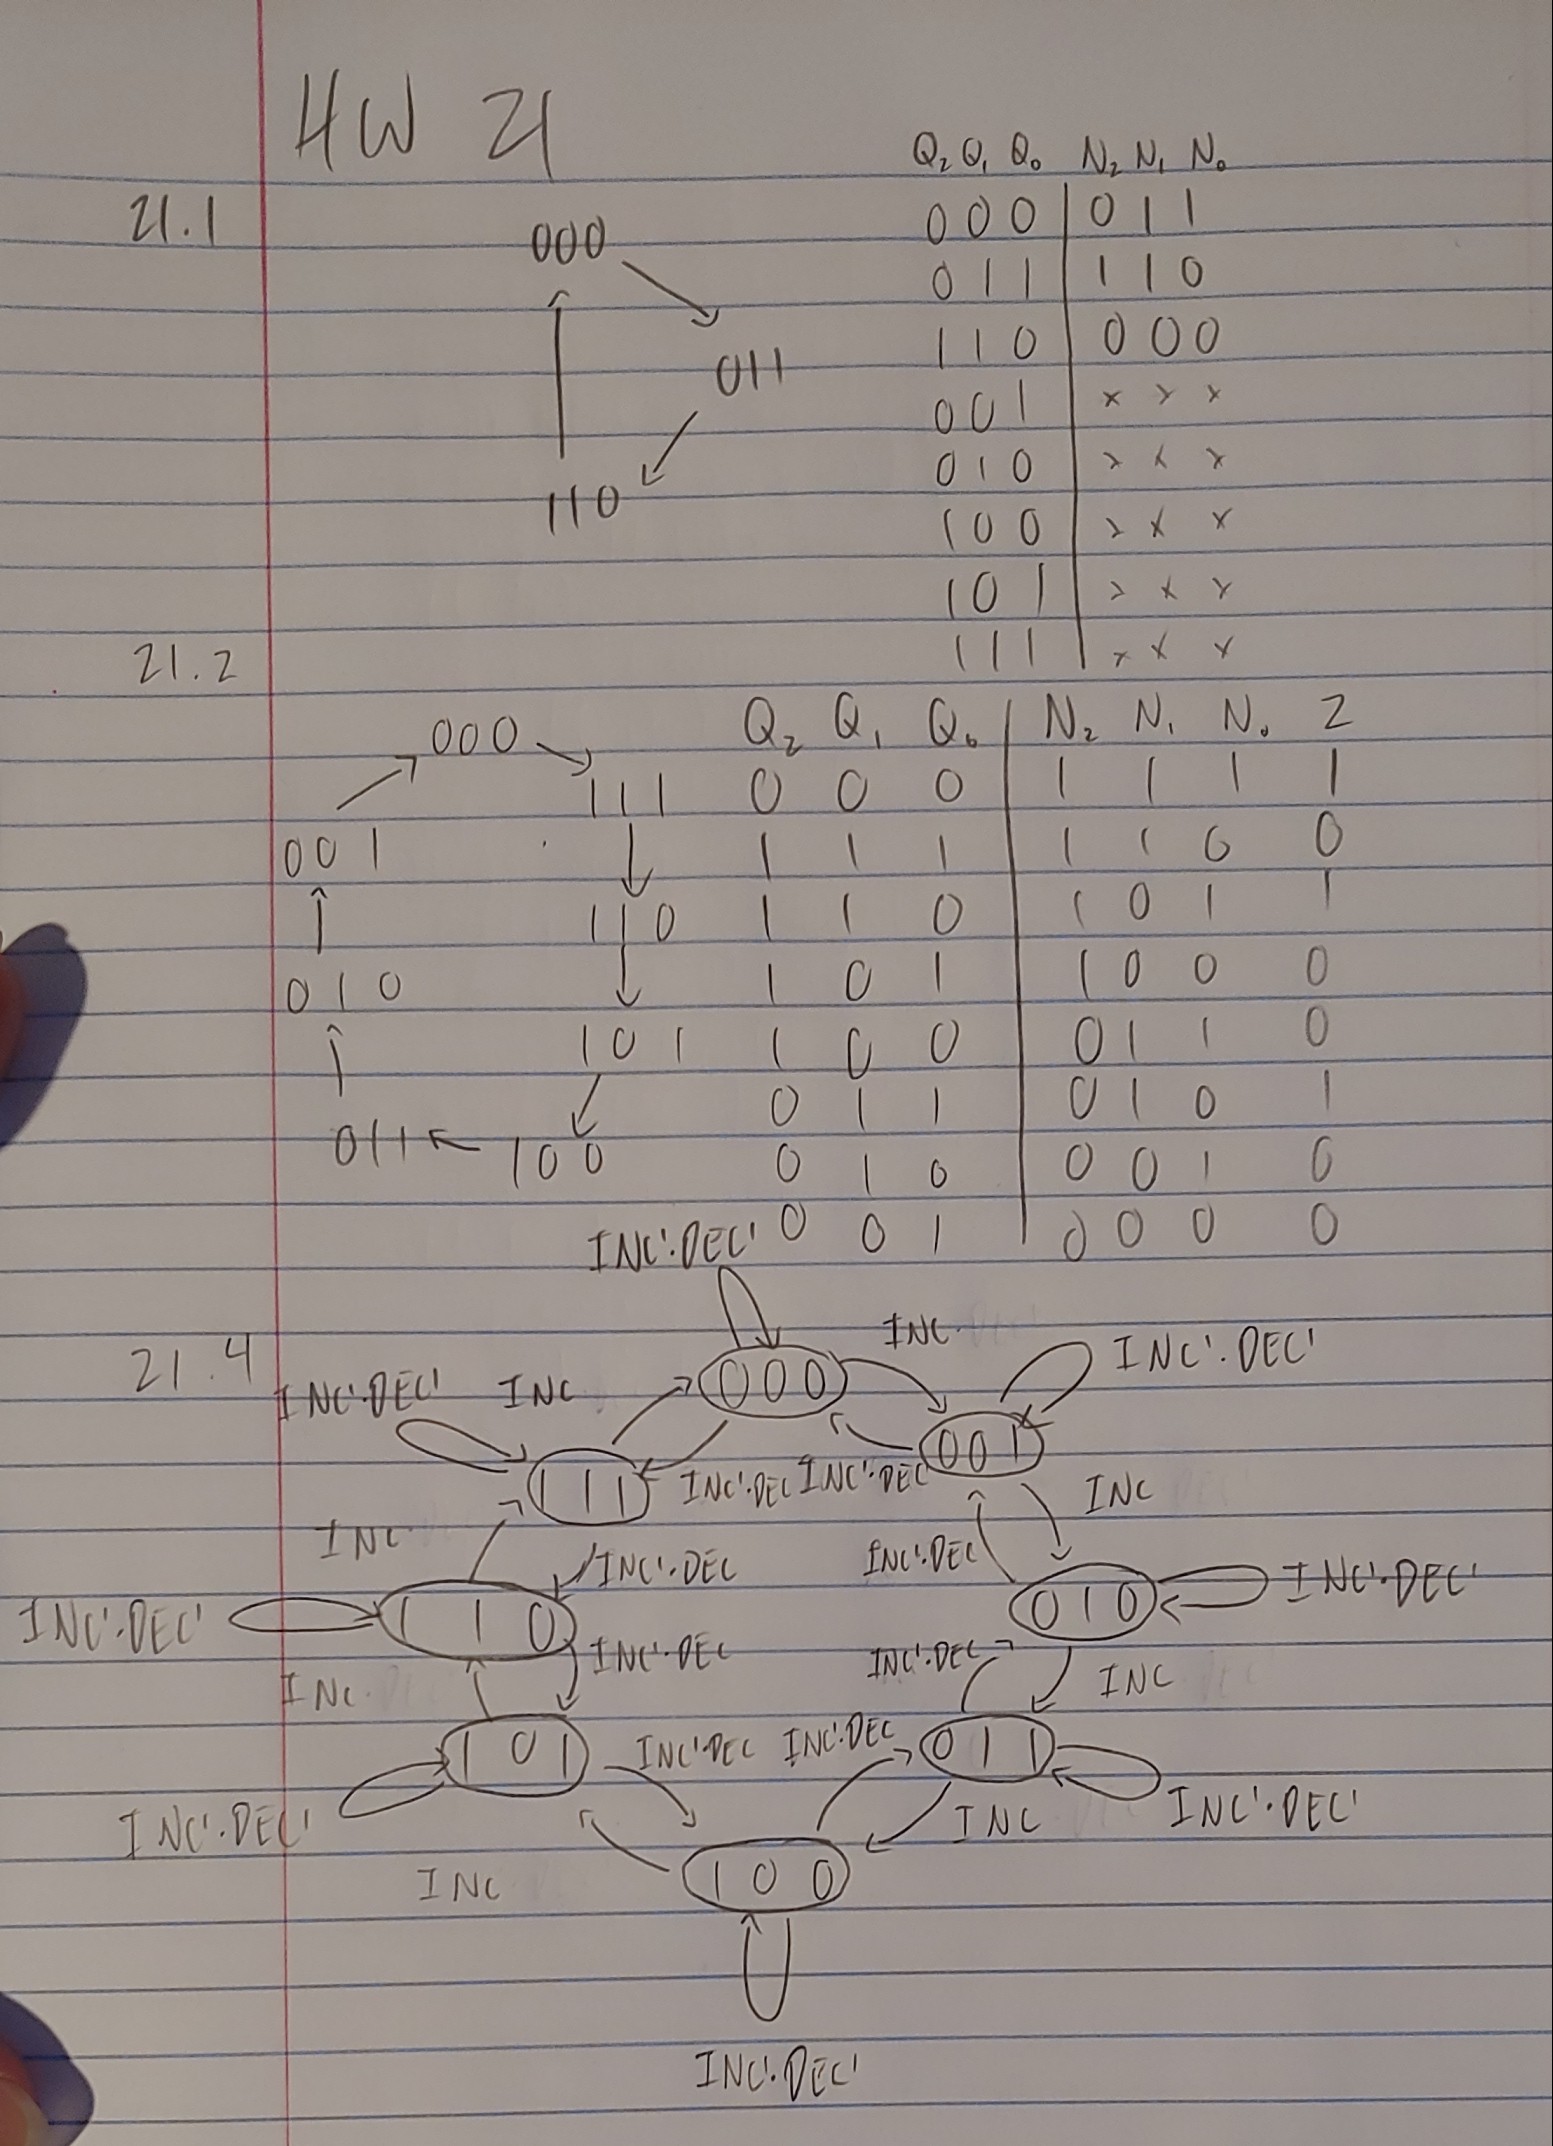 HW 21
21.1
000
011
110
Q₂ Q₁ Q₀ N₂ N₁ N₀
0 0 0 | 0 1 1
0 1 1 | 1 1 0
1 1 0 | 0 0 0
0 0 1 | x x x
0 1 0 | x x x
1 0 0 | x x x
1 0 1 | x x x
1 1 1 | x x x
21.2
000
111
001
110
010
101
011
100
Q₂ Q₁ Q₀ | N₂ N₁ N₀ Z
0 0 0 | 1 1 1 1
1 1 1 | 1 1 0 0
1 1 0 | 1 0 1 1
1 0 1 | 1 0 0 0
1 0 0 | 0 1 1 0
0 1 1 | 0 1 0 1
0 1 0 | 0 0 1 0
0 0 1 | 0 0 0 0
21.4
INC'·DEC'
INC
000
INC'·DEC'
INC'·DEC' INC
001
111
INC'·DEC INC'·DEC
INC
INC
INC'·DEC
INC'·DEC
INC'·DEC'
110
010
INC'·DEC'
INC'·DEC
INC'·DEC
INC
INC
101
INC'·DEC INC'·DEC
011
INC'·DEC'
INC
INC'·DEC'
INC
100
INC'·DEC'